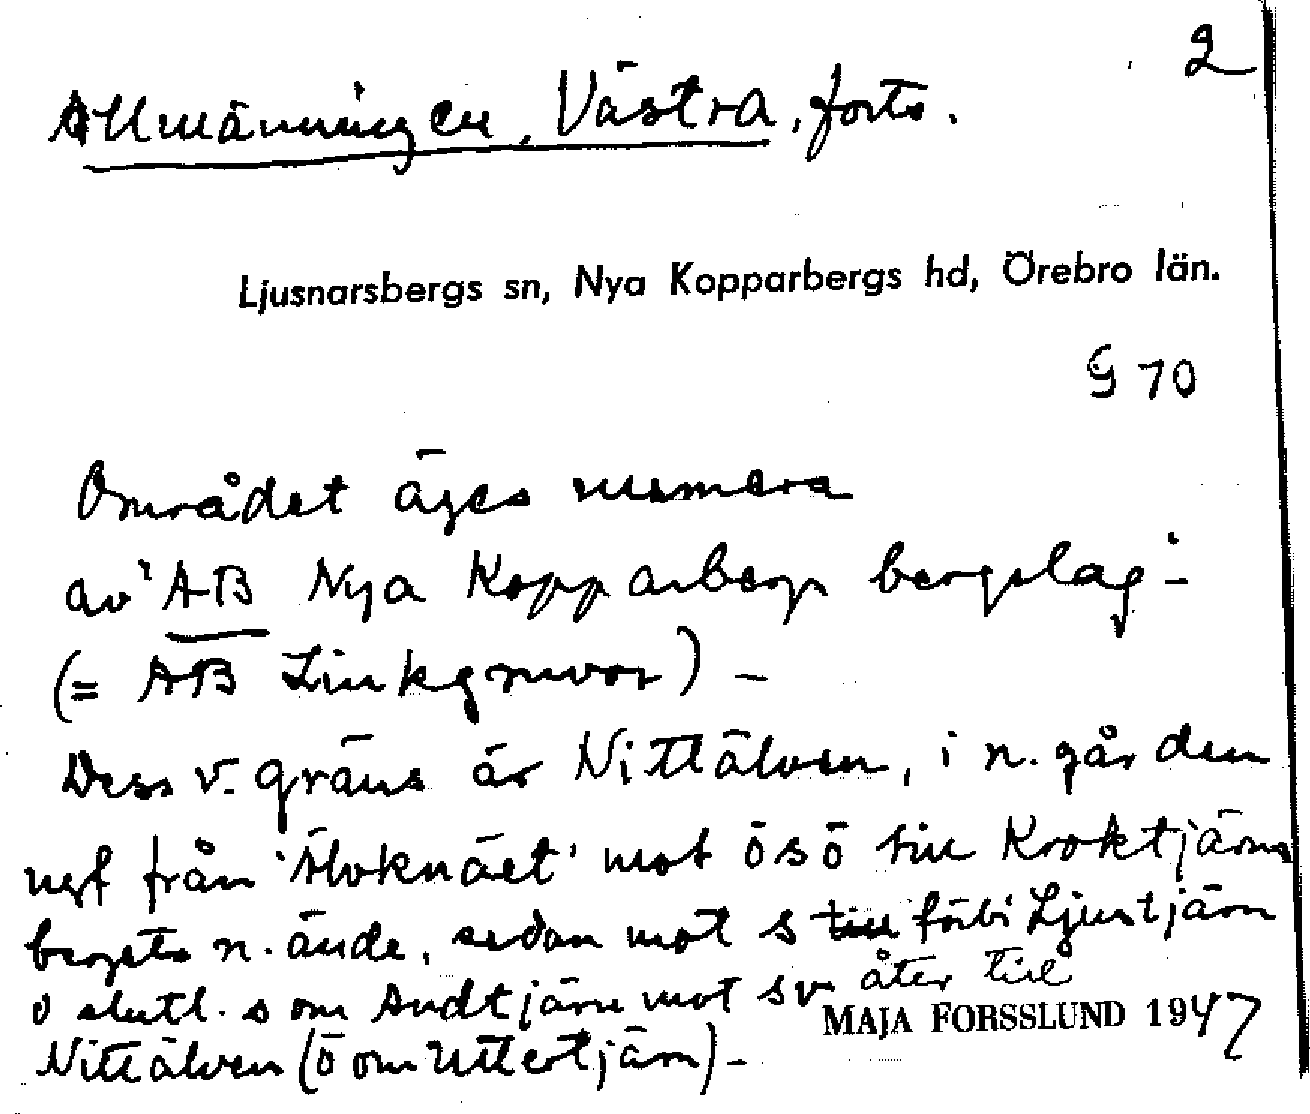 2
Allmänningen, Västra, forts.
Ljusnarsbergs sn, Nya Kopparbergs hd, Örebro län.
G 70
Området äges numera
av "AB Nya Kopparbergs bergslag" -
(= AB Zinkgruvor) -
Dess v. gräns är Nittälven, i n. går den
ungf från 'Älvknäet' mot ösö till Kroktjärns
bergets n. ände, sedan mot s till förbi Ljustjärn
o slutl. s om Andtjärn mot sv åter till
MAJA FORSSLUND 1947
Nittälven (ö om Uttertjärn) -